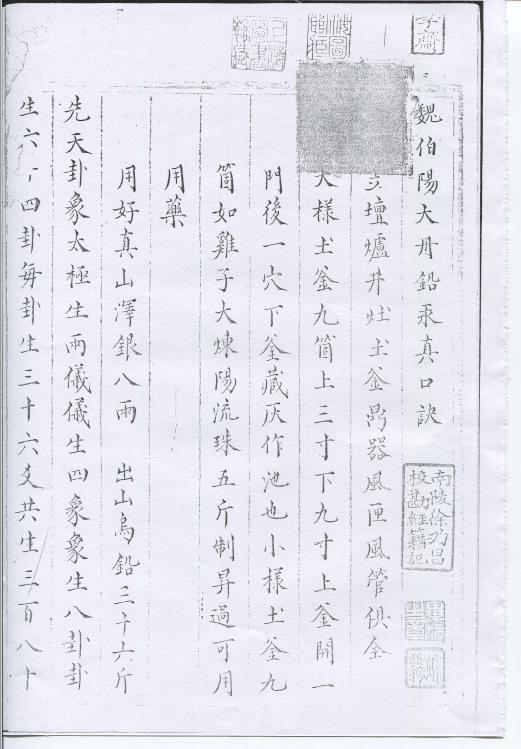 魏伯陽大丹鉛汞真口訣
立壇爐井灶土釜鼎器風匣風管俱全
大樣土釜九箇上三寸下九寸上釜開一
門後一穴下釜藏灰作池也小樣土釜九
箇如雞子大煉陽流珠五斤制昇過可用
用藥
用好真山澤銀八兩 出山烏鉛三十六斤
先天卦象太極生兩儀儀生四象象生八卦卦
生六十四卦每卦生三十六爻共生三百八十
南陵徐乃昌
校勘經籍記